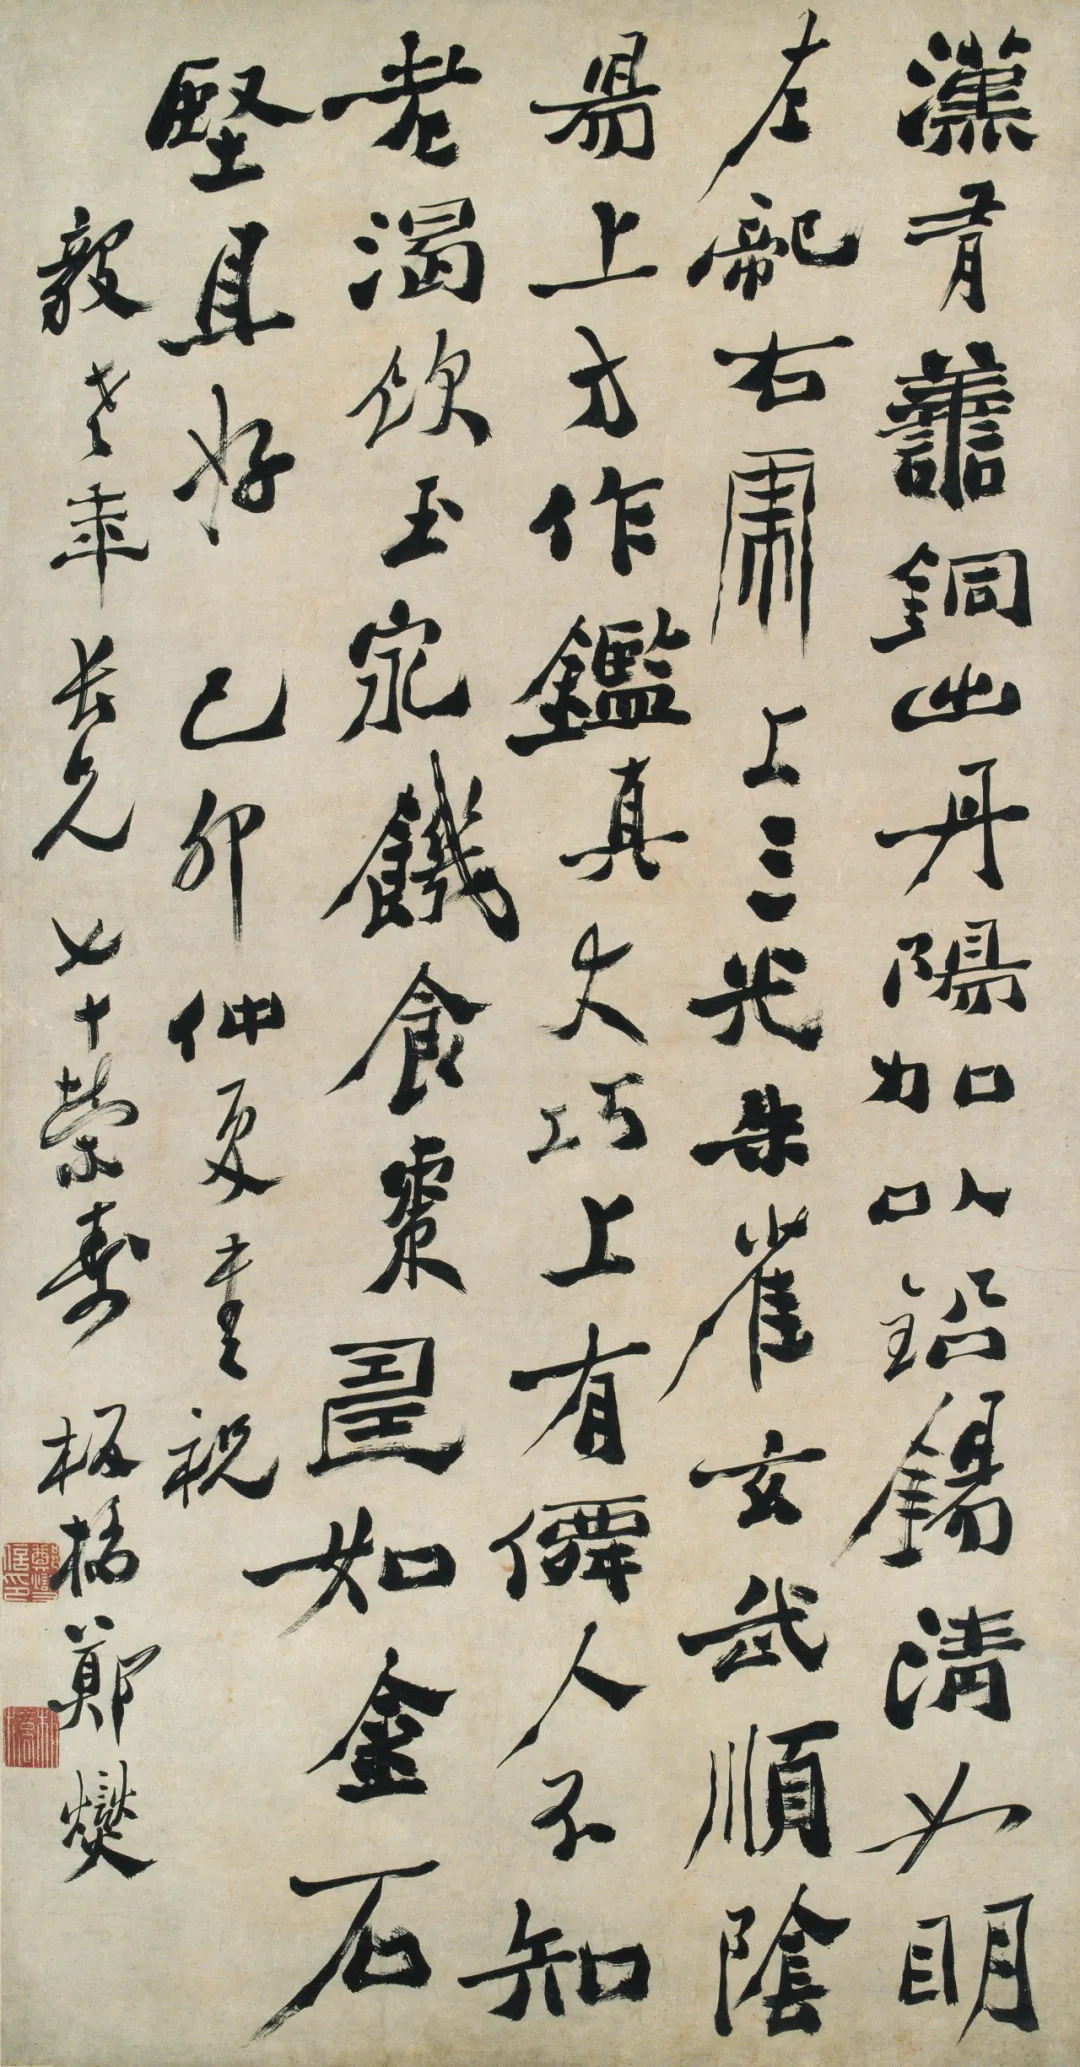 漢有譱銅出丹陽加㠯鉛錫清如明
左龍右虎上三光朱雀玄武順陰
昜上方作鑑真大巧上有僊人不知
老渴飲玉泉饑食棗𠙖如金石
堅且好 己卯仲夏書祝
毅老年長兄七十榮壽 板橋鄭燮